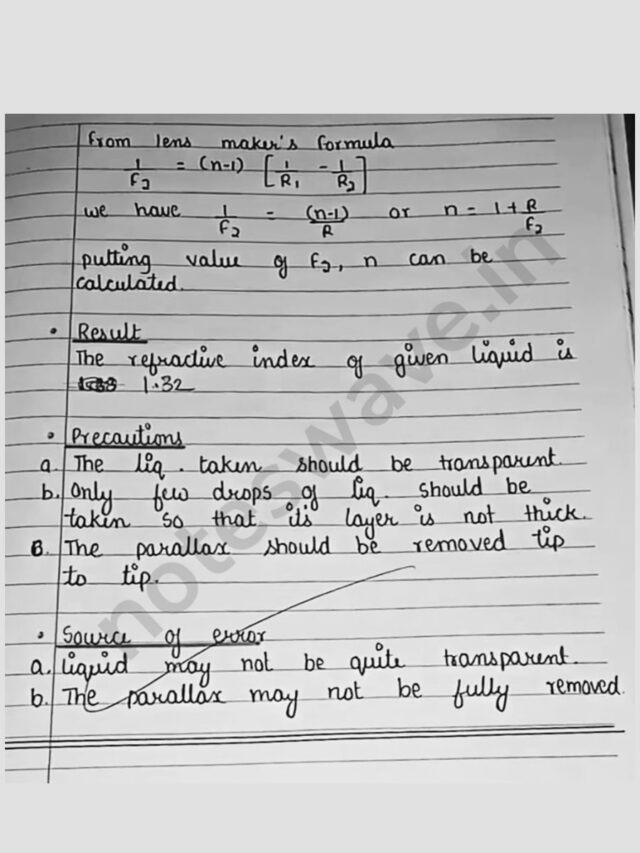 from lens maker's formula
1/F2 = (n-1) [1/R1 - 1/R2]
we have 1/F2 = (n-1)/R or n = 1 + R/F2
putting value of F2, n can be
calculated.
• Result
The refractive index of given liquid is
1.32
• Precautions
a. The liq. taken should be transparent.
b. Only few drops of liq. should be
taken so that its layer is not thick.
The parallax should be removed tip
to tip.
• Source of error
a. Liquid may not be quite transparent.
b. The parallax may not be fully removed.
noteswave.in